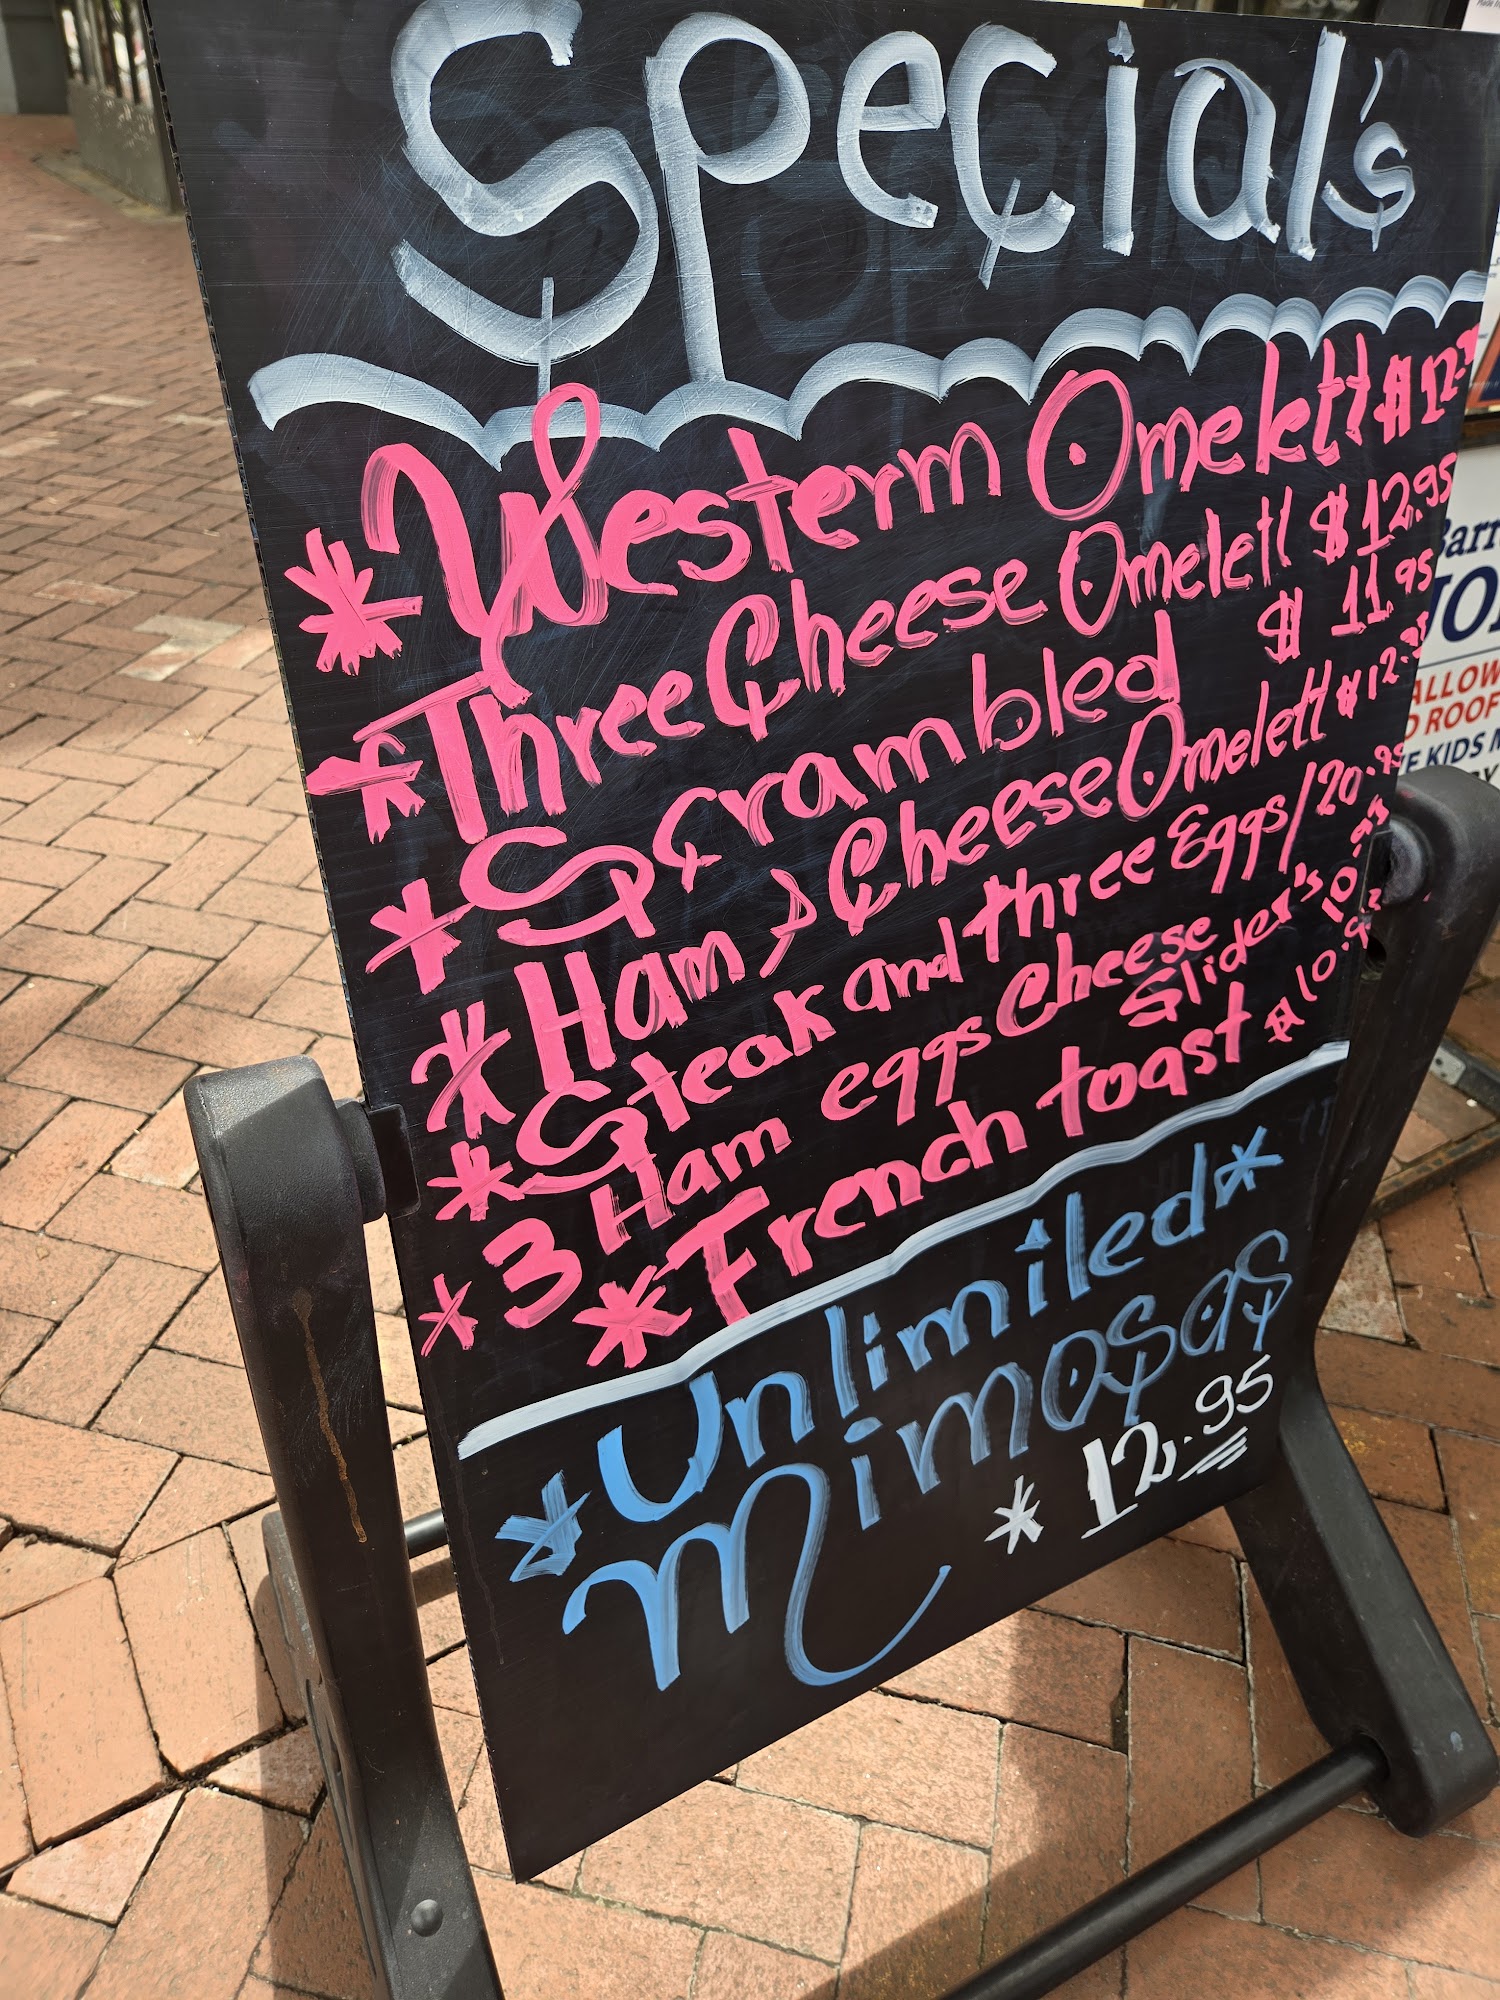 Special's
* Western Omelett $12.95
* Three Cheese Omelett $12.95
* Scrambled $ 11.95
* Ham & Cheese Omelett $12.95
* Steak and three Eggs / 20.95
* 3 Ham eggs Cheese Slider's 10.95
* French toast $10.95
* Unlimiled *
Mimosas
* 12.95
ALLOW
ROOF
KIDS